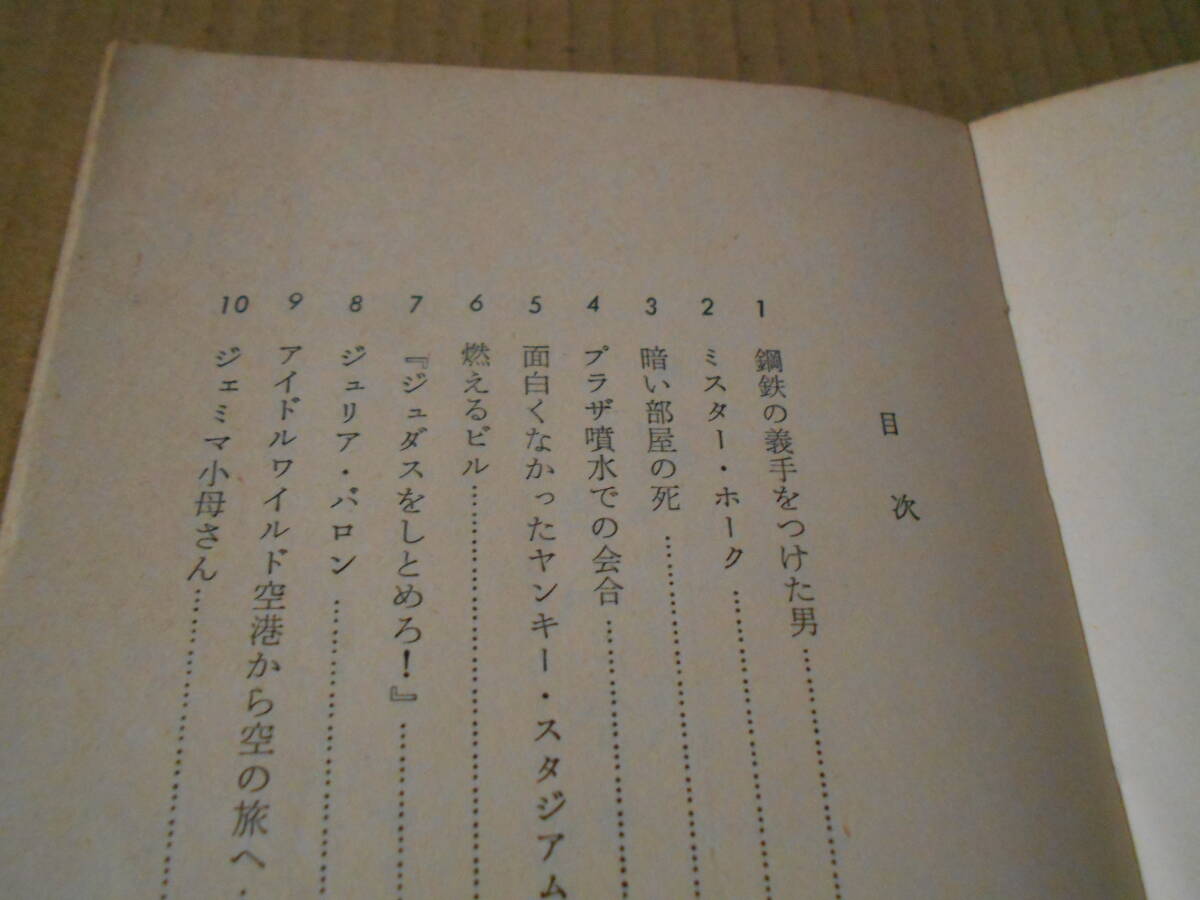 目次
1 鋼鉄の義手をつけた男……………
2 ミスター・ホーク……………
3 暗い部屋の死……………
4 プラザ噴水での会合……………
5 面白くなかったヤンキー・スタジアム
6 燃えるビル……………
7 『ジュダスをしとめろ!』……………
8 ジュリア・バロン……………
9 アイドルワイルド空港から空の旅へ…
10 ジェミマ小母さん……………